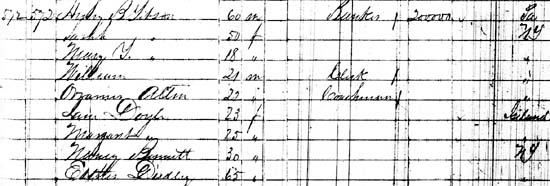 572 572 Henry B. Gibson 60 m Banker / 200000 Pa
Sarah " 50 f NY
Mary T. " 18 "
William 21 m Clerk / "
Allen 22 " Coachman / "
Jane Doyle 23 f Ireland
Margaret " 25 " "
Nancy Bennett 30 " NY
Esther Dudley 65 " "